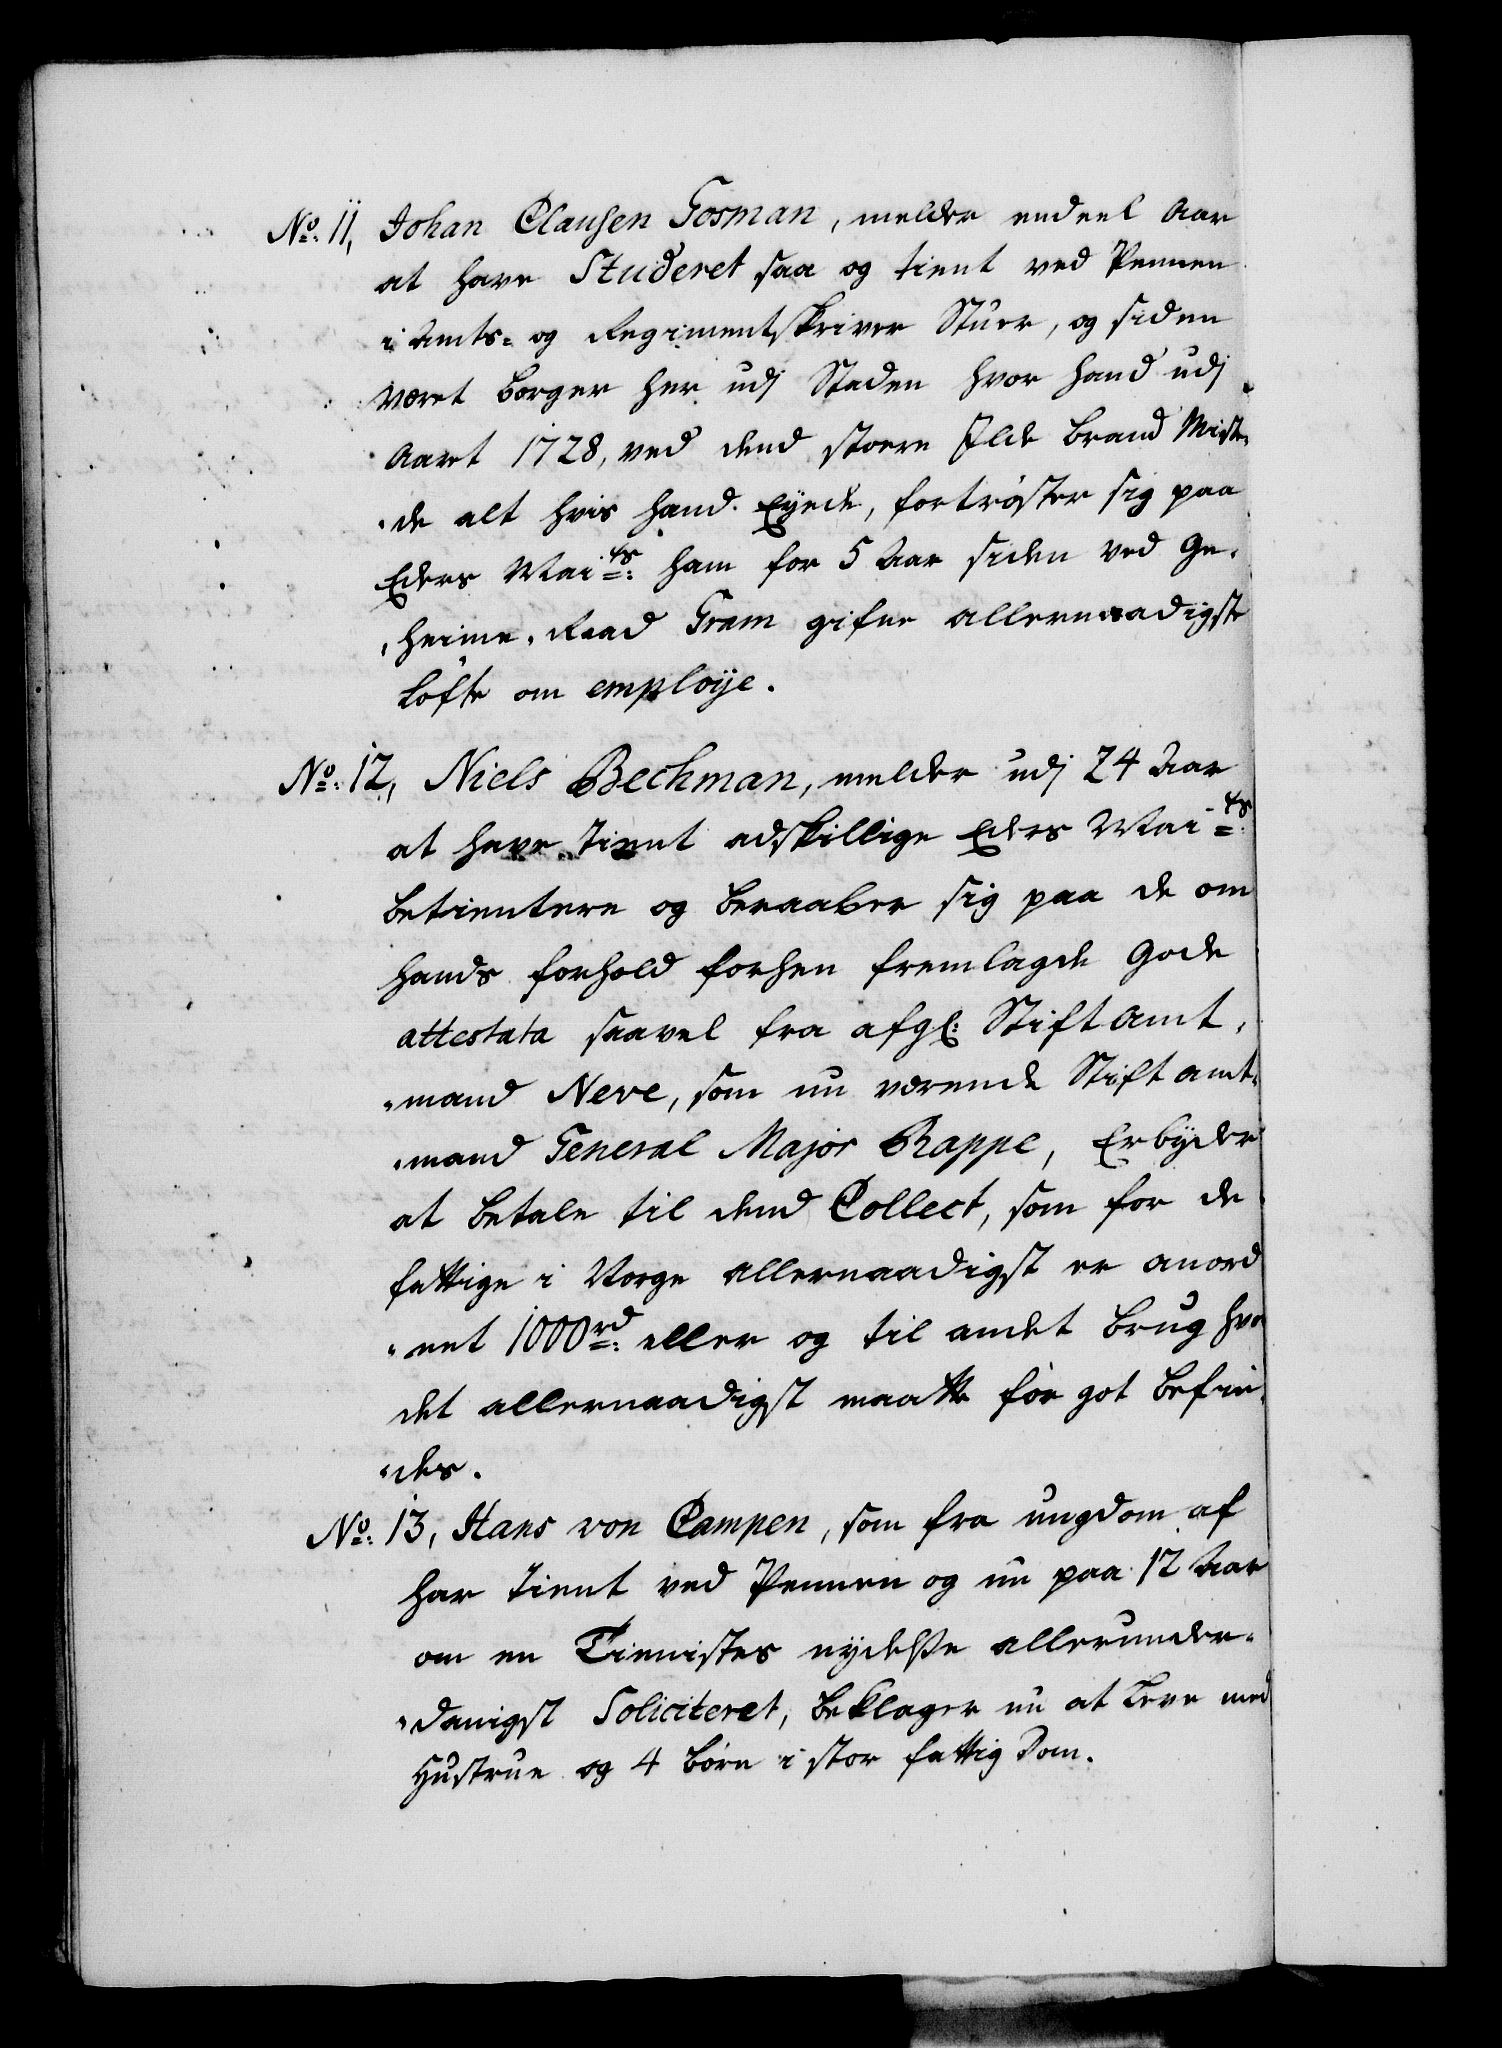 No: 11, Johan Clausen Gosman, melder endeel Aar
at have Studeret saa og tient ved Pennen
i Amts- og Regimentskriver Stuer, og siden
været borger her udj Staden hvor hand udj
Aaret 1728, ved dend stoere Ilde brand Miste-
-de alt hvis hand Eyede, fortrøster sig paa
Eders Maits: ham for 5 Aar siden ved Ge-
-heime-Raad Gram gifne allernaadigste
Løfte om employe.
No: 12, Niels Bechman, melder udj 24 Aar
at have tient adskillige Eders Maits:
betientere og beraaber sig paa de om
hands forhold forhen fremlagde gode
attestata saavel fra afgl: Stiftamt-
-mand Neve, som nu værende Stiftamt-
-mand General Major Rappe, Erbyder
at betale til dend Collect, som for de
fattige i Norge allernaadigst er anord
-net 1000rd: eller og til andet brug hvo
det allernaadigst maatte for got befin-
-des.
No: 13, Hans von Campen, som fra ungdom af
har tient ved Pennen og nu paa 12 Aar
om en Tienistes nydelse allerunder-
-danigst Soliciteret, beklager nu at leve med
Hustrue og 4 børn i stor fattigdom.